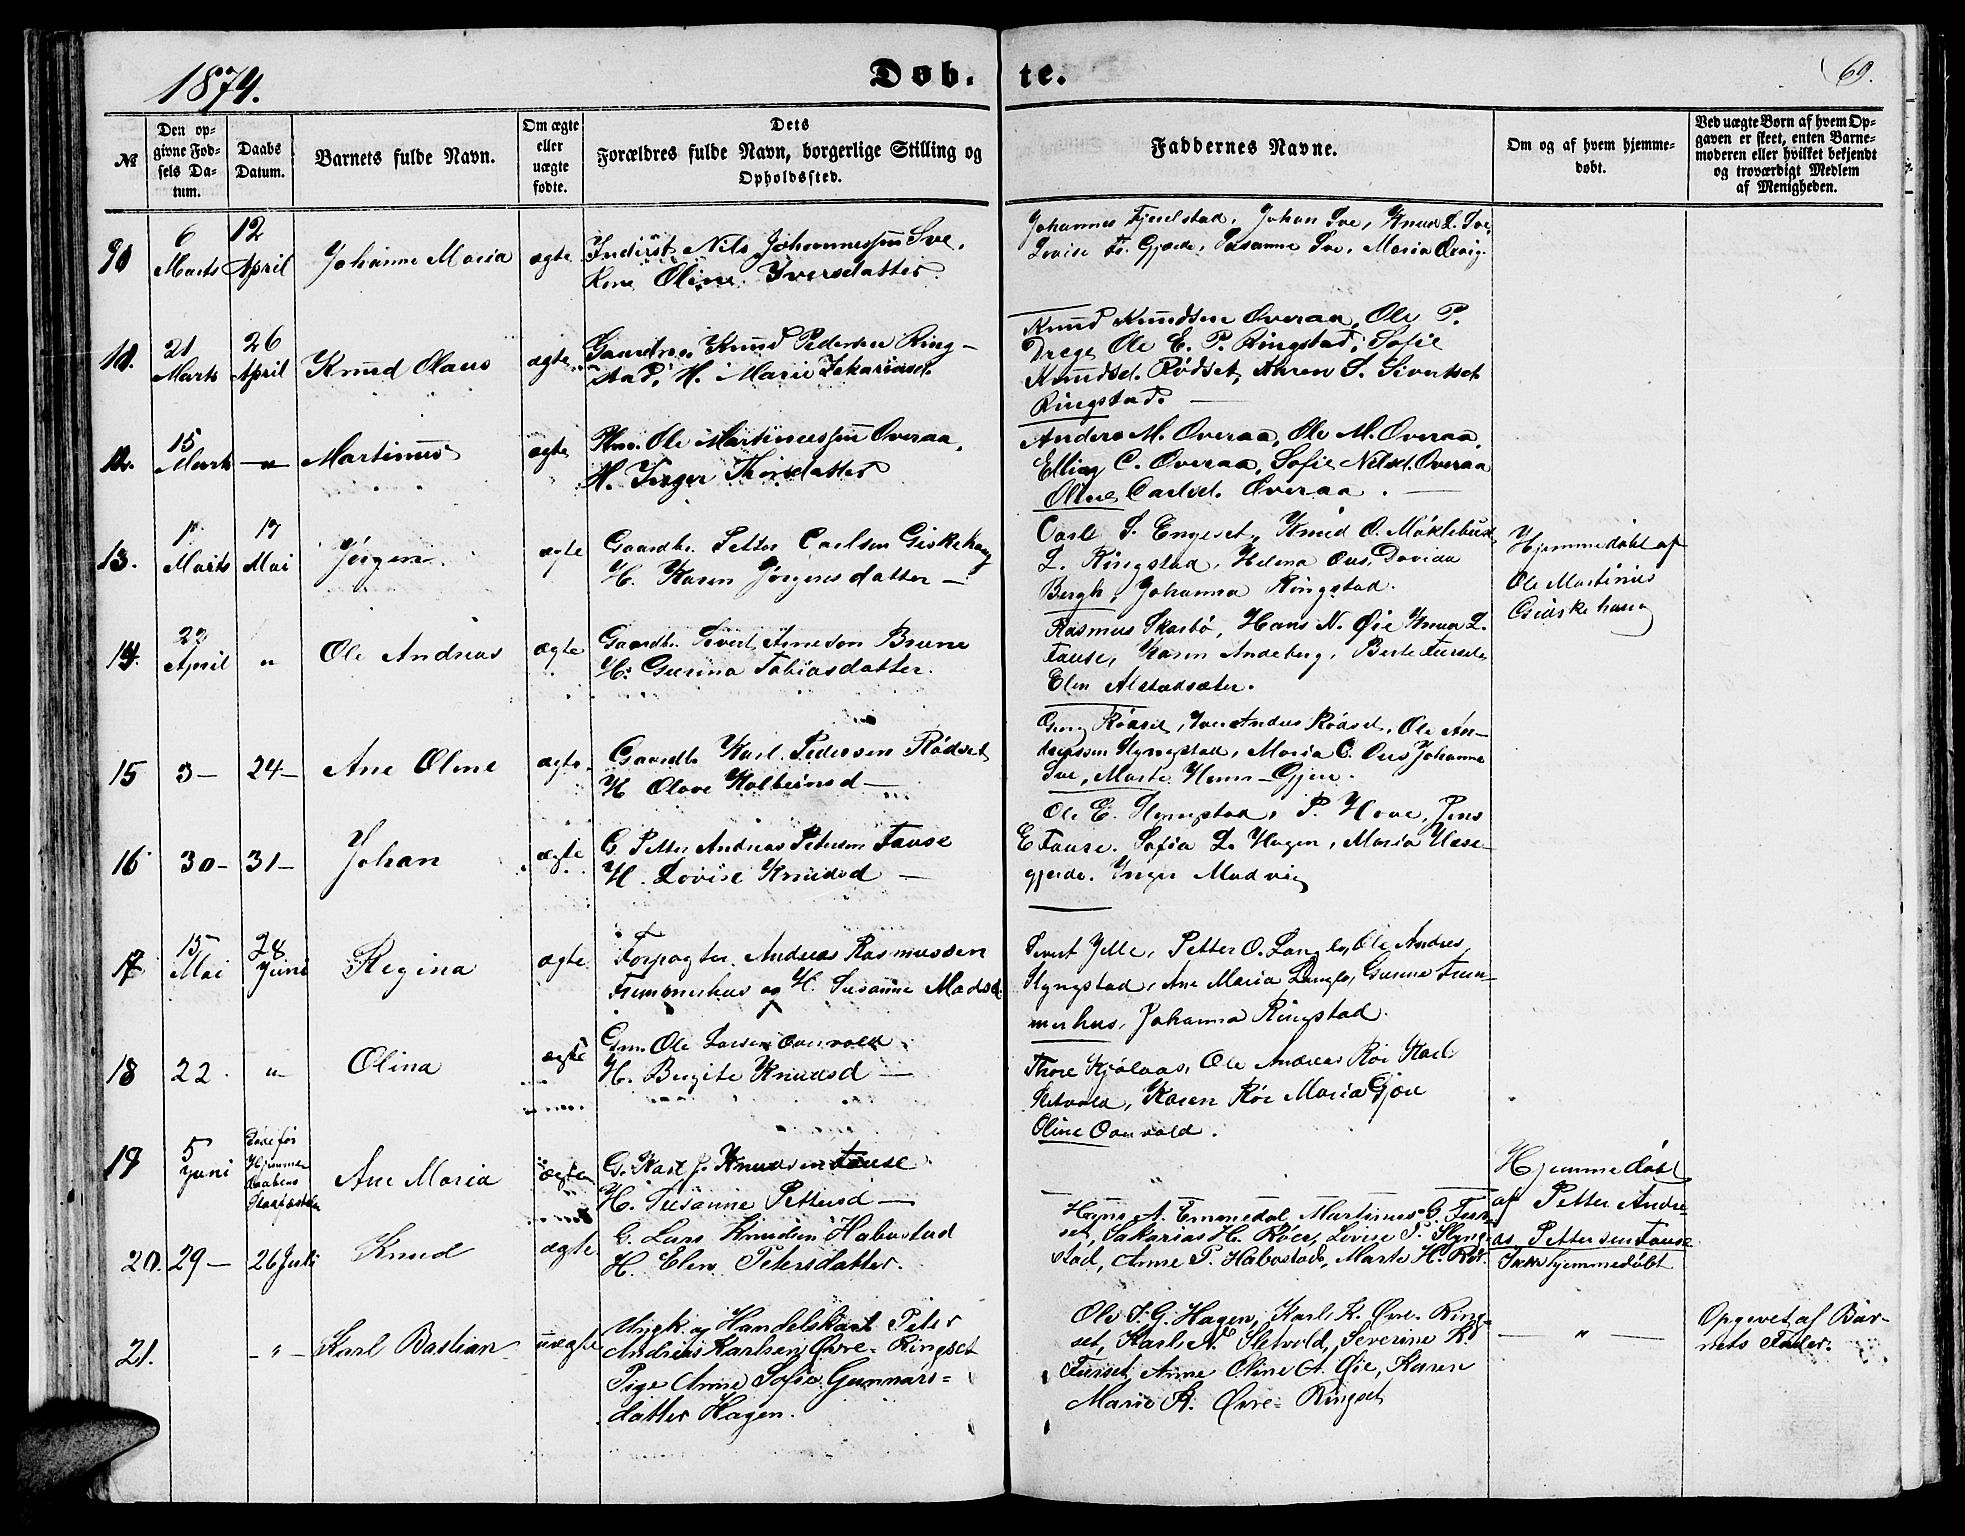 1874.
Døb-
te.
69.
№
Den op-
givne Fød-
sels Da-
tum.
Daabs
Datum.
Barnets fulde Navn.
Om ægte
eller
uægte
fødte.
Dets
Forældres fulde Navn, borgerlige Stilling og
Opholdssted.
Faddernes Navne.
Om og af hvem hjemme-
døbt.
Ved uægte Børn af hvem Op-
gaven er skeet, enten Barne-
moderen eller hvilket bekjendt
og troværdigt Medlem
af Menigheden.
6 Marts
12 April
Johanne Maria
ægte
Inderst Nils Johannessen Sve,
Kone Oline Iversdatter
Johannes Fjeldstad, Johan Sve, Knud L. Sve
Lovise Gjære, Susanne Sve, Maria
11.
21 Marts
26 April
Knud Olaus
ægte
Gaardm. Knud Pedersen Ring-
stad, H. Marie Zakariasd.
Knud Knudsen Overaa, Ole P.
Drege Ole E. P. Ringstad, Sofie
Knudsd. Rødset, Karen S. Sivertsd.
Ringstad.
12.
15 Marts
– " –
Martinus
ægte
Hm. Ole Martinussen Overaa,
H. Inger Thorsdatter
Anders M. Overaa, Ole M. Overaa,
Elling C. Overaa, Sofie Nilsd. Overaa
Oline Carlsd. Overaa.
13.
1 Marts
17 Mai
Jørgen
ægte
Gaardbr. Petter Carlsen Giskehaug
H. Karen Jørgensdatter –
Carl S. Engeset, Knud O. Møklebust,
L. Ringstad, Helena Aus, Davida
Bergh, Johanna Ringstad.
Hjemmedøbt af
Ole Martinus
Giskehaug
14.
23 April
"
Ole Andreas
ægte
Gaardbr. Sivert Arneson Brune
H. Gurina Tobiasdatter.
Rasmus Skarbø, Hans N. Øie Knud L.
Fause, Karen Andeberg, Berte Furset
Elen Alstadsæter.
15
3 –
24 –
Ane Oline
ægte
Gaardb. Karl Pedersen Rødset
H. Olave Kolbeinsd –
Georg Rødset, Iver Andreas Rødset, Ole An-
dreassen Slyngstad, Maria C. Aus Johanne
Sve, Marte Gjære.
16
30 –
31 –
Johan
ægte
G Petter Andreas Petersen Fause
H. Lovise Knudsd –
Ole E. Slyngstad, P. Hove, Jens
E Fause. Sofia L. Hagen, Maria Hesse-
gjerde. Inger Madvig
17
15 Mai
28 Juni
Regina
ægte
Forpagter Andreas Rasmussen
Frimmerhus og H. Susanne Madsd.
Sivert Jelle, Petter O. Langlo, Ole Andreas
Slyngstad, Ane Maria Langlo, Gurine Frim-
merhus, Johanna Ringstad.
18
22
"
Olina
ægte
Gm. Ole Larsen Ouvvold
H. Birgite Knudsd –
Thore Kjølaas, Ole Andreas Röe Karl
Sletvold, Karen Röe Maria Gjære
Oline Ouvvold.
19
5 Juni
Døde før
Hjemme-
daabens
Stadfæstelse
Ane Maria
ægte
G. Karl J. Knudsen Fause
H. Susanne Pettersd –
Hjemmedøbt
af Petter Andre-
as Pettersen Fause
20.
29 –
26 Juli
Knud
ægte
G. Lars Knudsen Habostad
H. Elen Petersdatter.
A. Emmedal, Martinus G. Fur-
set, Sakarias H. Röes, Lovise P. Slyng-
stad, Anne P. Habostad, Marte H. Röe.
Ikke hjemmedøbt
21.
– " –
Karl Bastian
uægte
Ungk. og Handelskarl Peter
Andreas Karlsen Øvre-Ringset
Pige Anne Sofie Gunnars-
datter Hagen.
Ole S. G. Hagen, Karl K. Øvre-Ring-
set, Karl N. Sletvold, Severine K.
Furset, Anne Oline A. Øie, Karen
Marie K. Øvre-Ringset
– " –
Opgivet af Bar-
nets Fader.